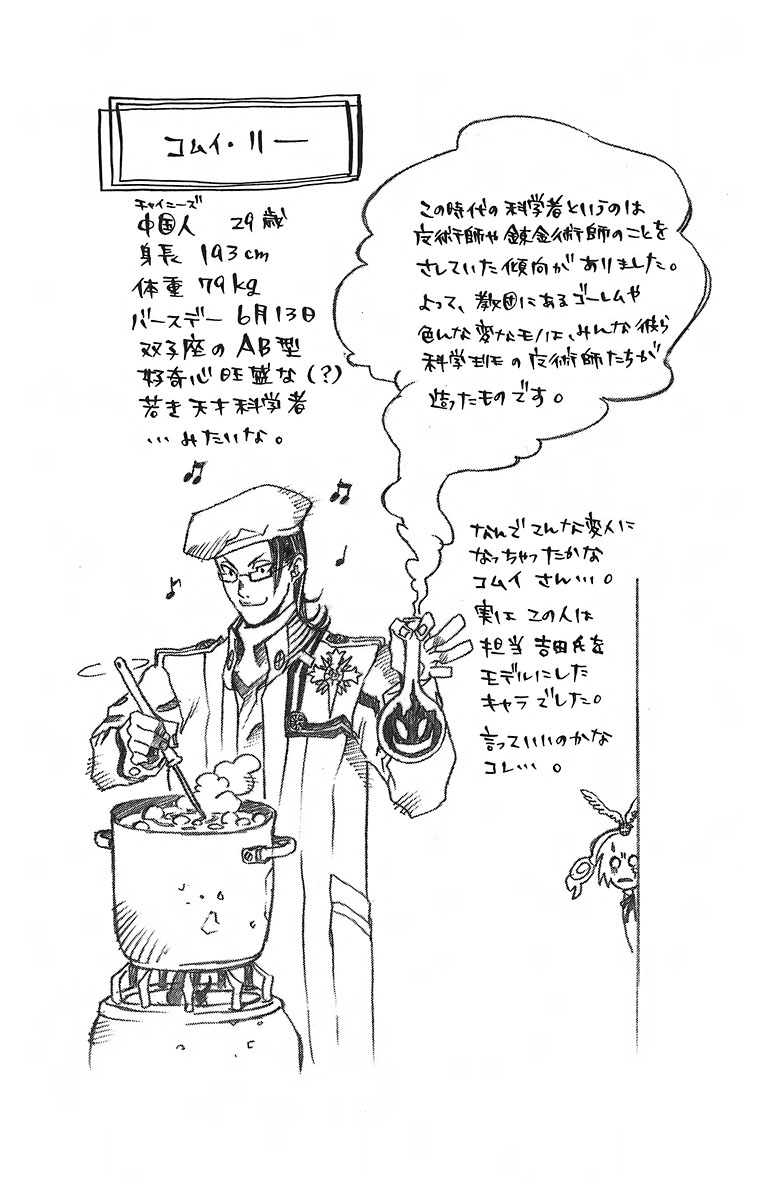 コムイ・リー
チャイニーズ
中国人 29歳
身長 193cm
体重 79kg
バースデー 6月13日
双子座の AB型
好奇心旺盛な(?)
若き天才科学者
…みたいな。
この時代の科学者というのは
魔術師や錬金術師のことを
さしていた傾向がありました。
よって、教団にあるゴーレムや
色んな変なモノは、みんな彼ら
科学班の魔術師たちが
造ったものです。
なんでこんな変人に
なっちゃったかな
コムイさん…。
実はこの人は
担当吉田氏を
モデルにした
キャラでした。
言っていいのかな
コレ…。